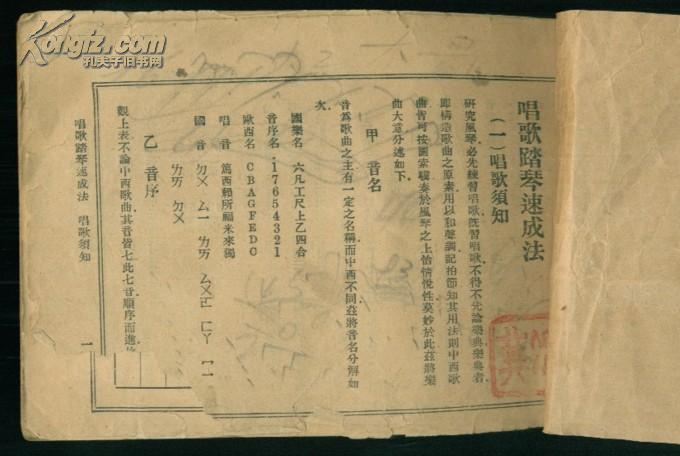 唱歌踏琴速成法
(一)唱歌須知
研究風琴必先練習唱歌既習唱歌不得不先論樂典樂典者
即構造歌曲之原素用以和聲調記拍節知其用法則中西歌
曲皆可按圖索驥奏於風琴之上怡情悅性莫妙於此茲將樂
曲大意分述如下
甲 音名
音為歌曲之主有一定之名稱而中西不同茲將音名分解如
次
國樂名 六凡工尺上乙四合
音序名 ·17654321
歐西名 CBAGFEDC
唱音 篤西賴所福米來獨
國音 ㄉㄨ ㄙㄧ ㄌㄞ ㄙㄨㄛ ㄈㄚ ㄇㄧ
ㄌㄞ ㄉㄨ
乙 音序
觀上表不論中西歌曲其音皆七此七音順序而進
唱歌踏琴速成法 唱歌須知 一
Kongfz.com
孔夫子旧书网